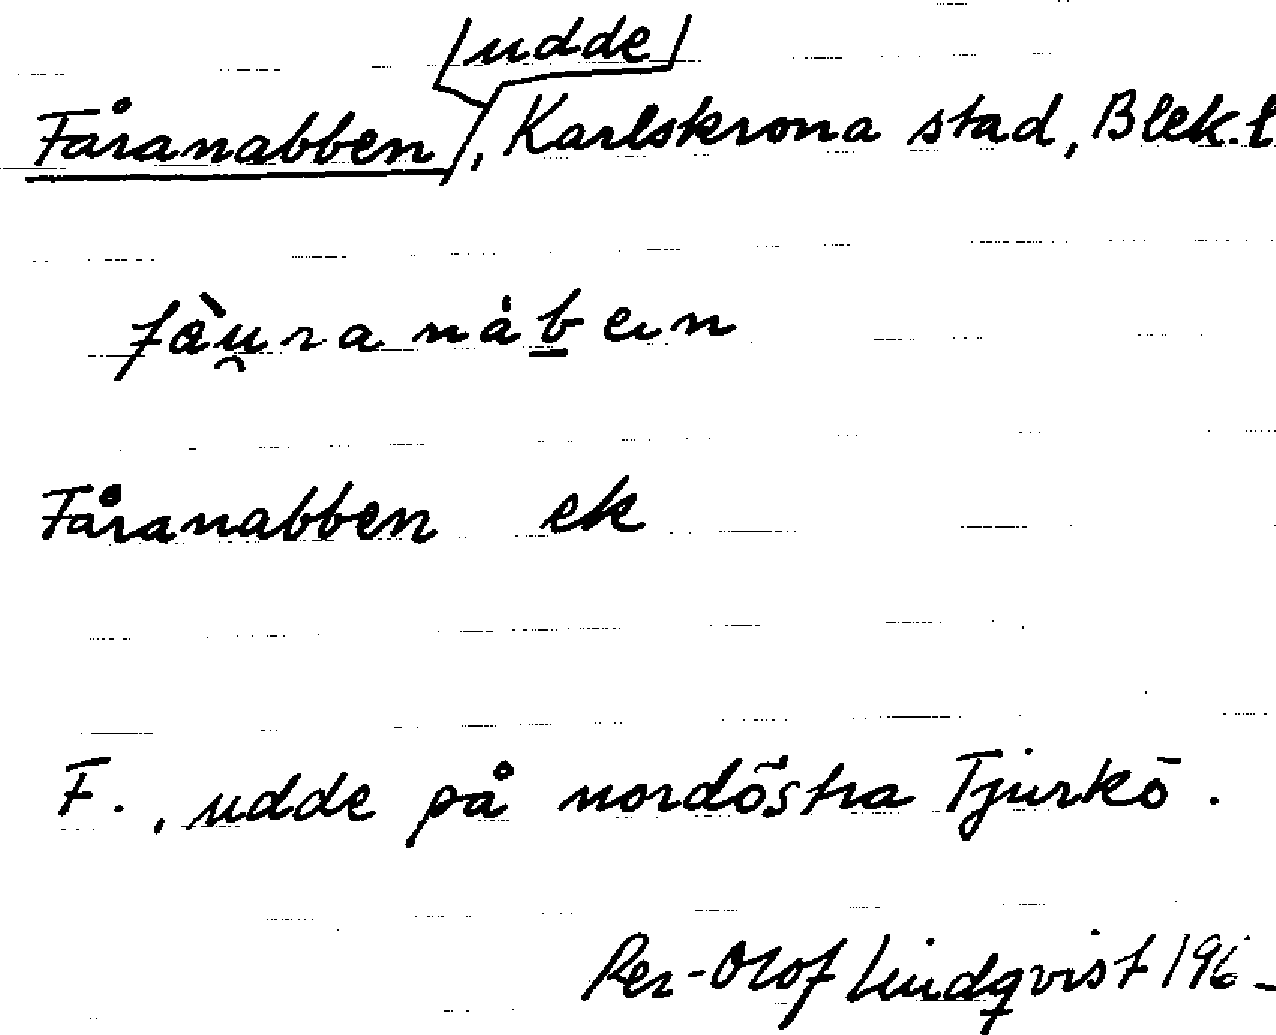 [udde]
Fåranabben, Karlskrona stad, Blek.l
Fåranabben ek
F., udde på nordöstra Tjurkö.
Per-Olof Lindqvist 196-